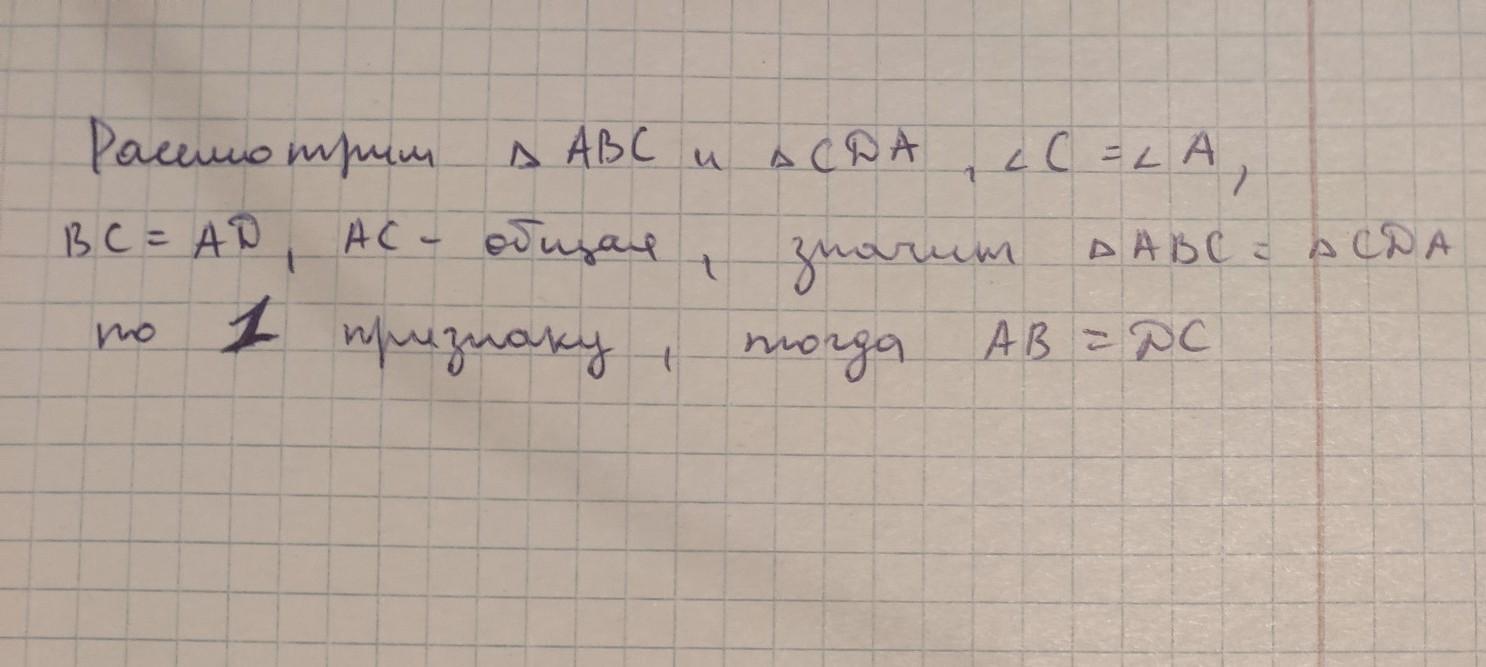 Рассмотрим △ ABC и △ CDA, ∠ C = ∠ A,
BC = AD, AC - общая, значит △ ABC = △ CDA
по 1 признаку, тогда AB = DC